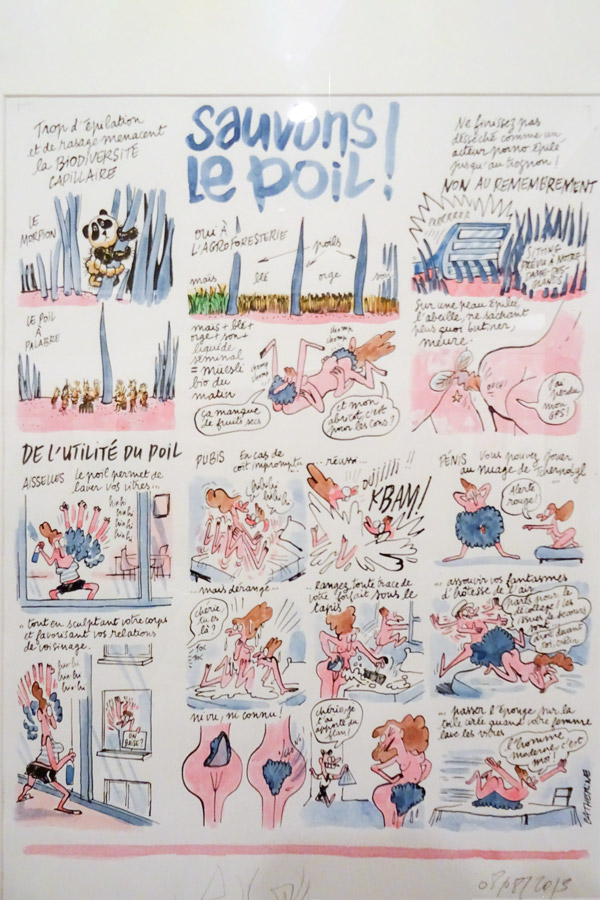 Trop d'épilation
et de rasage menacent
la BIODIVERSITÉ
CAPILLAIRE
sauvons
le poil!
Ne finissez pas
desséché comme un
acteur porno épilé
jusqu'au trognon!
NON AU REMEMBREMENT
LE
MORPION
OUI À
L'AGROFORESTERIE
poils
maïs
blé
orge
soja
STRING
PRÉVU À NOTRE
DAME-DES-
PLANTES
LE POIL
À
PALABRE
maïs + blé +
orge + soja +
liquide
séminal
= muesli
bio du
matin
chomp
chomp
chomp
chomp
Ça manque
de fruits secs
et mon
abricot, c'est
pour les cons?
Sur une peau épilée,
l'abeille, ne sachant
plus quoi butiner,
meurt.
J'ai
perdu
mon
GPS!
DE L'UTILITÉ DU POIL
AISSELLES le poil permet de
laver vos vitres...
... tout en sculptant votre corps
et favorisant vos relations
de voisinage.
ON
BAISE?
PUBIS En cas de
coït impromptu
... réussi...
OUIIIII!!
KBAM!
... mais dérangé...
chérie,
tu es
là?
TOC
TOC
... longez toute trace de
votre forfait sous le
tapis
ni vu, ni connu!
chérie, je
t'ai
apporté du
flan!
PÉNIS Vous pouvez jouer
au nuage de Tchernobyl
...
Alerte
rouge!
... assouvir vos fantasmes
d'hôtesse de l'air
... passer l'éponge sur la
toile cirée quand votre femme
lave les vitres
l'homme
moderne, c'est
moi!
CATHERINE
08/08/2013